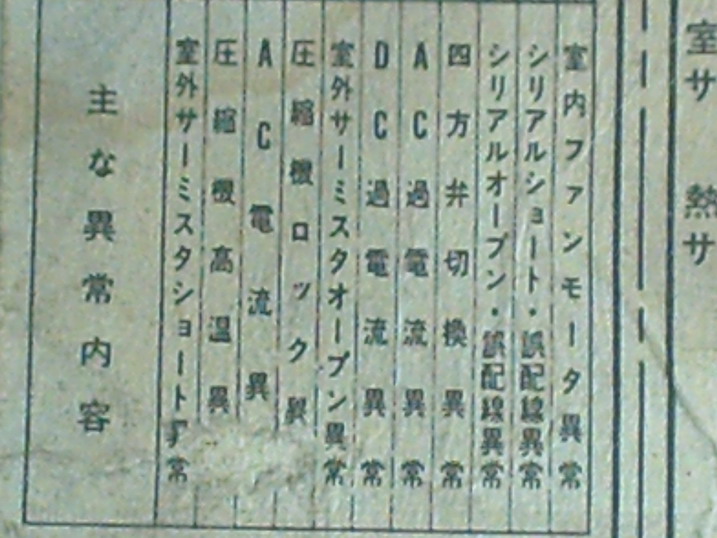 室
サ
熱
サ
室内ファンモータ異常
シリアルショート・誤配線異常
シリアルオープン・誤配線異常
四方弁切換異常
AC過電流異常
DC過電流異常
室外サーミスタオープン異常
圧縮機ロック異
AC電流異
圧縮機高温異
室外サーミスタショート異常
主な異常内容